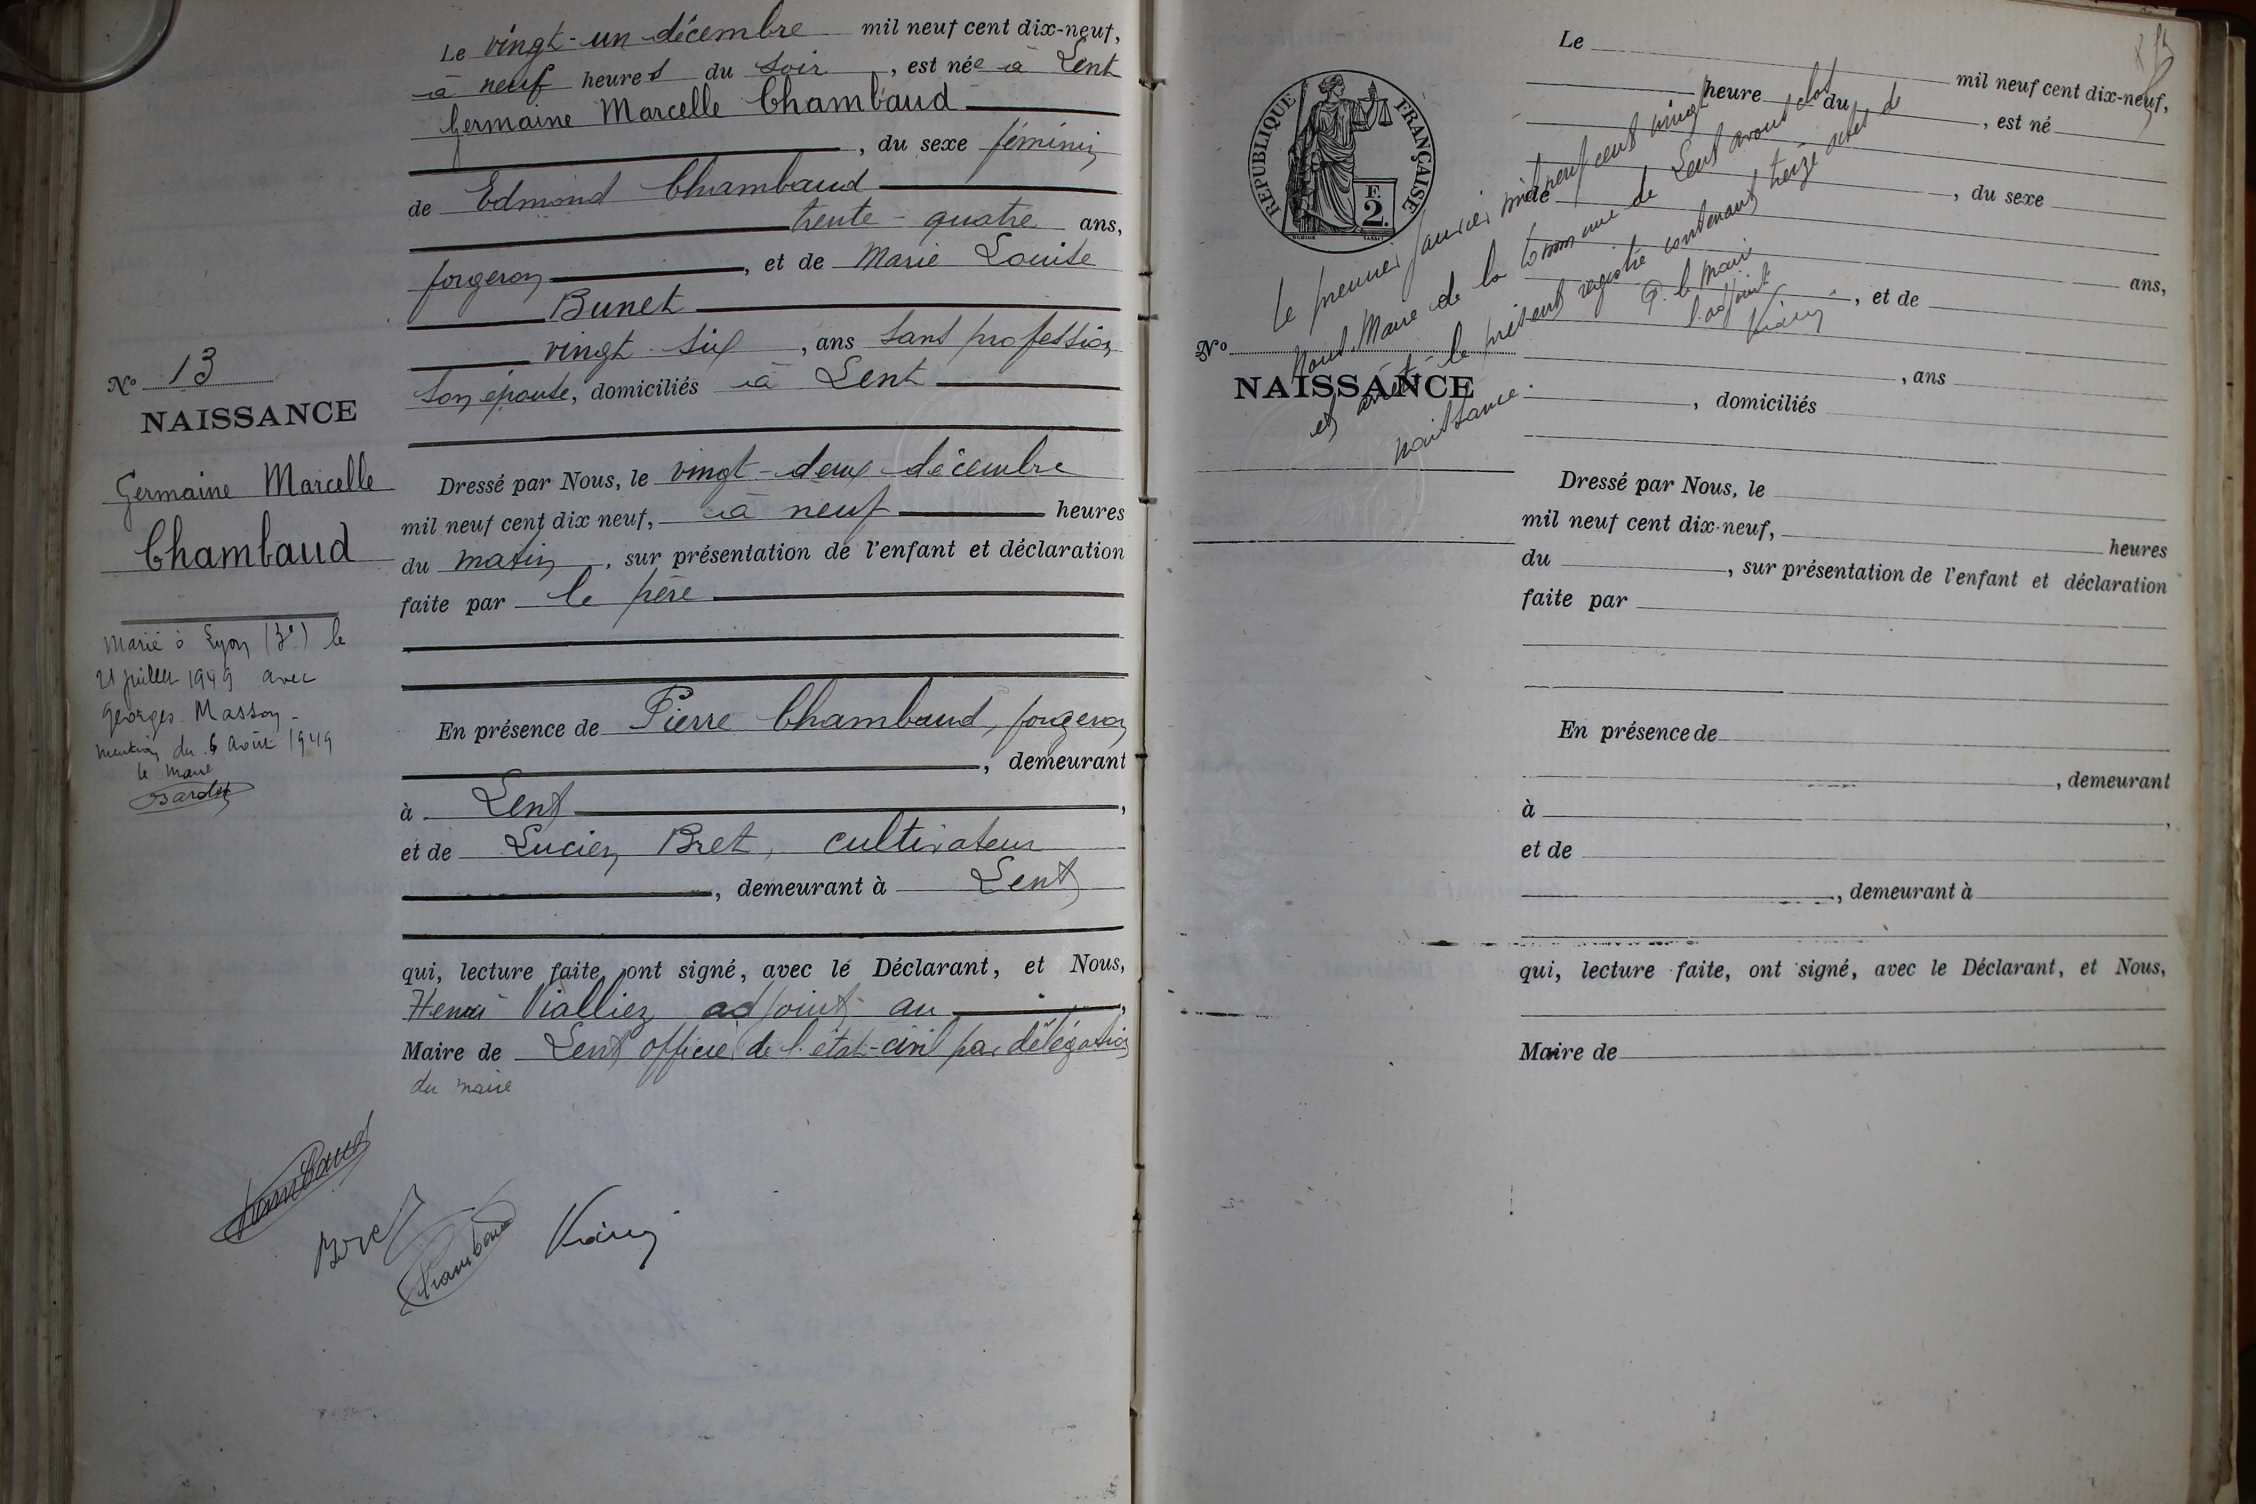 Le vingt-un décembre mil neuf cent dix-neuf,
à neuf heures du soir, est née à Lent
Germaine Marcelle Chambaud
, du sexe féminin
de Edmond Chambaud
trente-quatre ans,
forgeron, et de Marie Louise
Bunet
vingt-six, ans sans profession
son épouse, domiciliés à Lent
No 13
NAISSANCE
Germaine Marcelle
Chambaud
Dressé par Nous, le vingt-deux décembre
mil neuf cent dix neuf, à neuf heures
du matin, sur présentation de l'enfant et déclaration
faite par le père
Marié à Lyon (3e) le
21 juillet 1949 avec
Georges Masson
mention du 6 août 1949
le maire
En présence de Pierre Chambaud, forgeron
, demeurant
à Lent,
et de Lucien Bret, cultivateur
, demeurant à Lent
qui, lecture faite, ont signé, avec le Déclarant, et Nous,
Henri Vialliez adjoint au
Maire de Lent officier de l'état-civil par délégation
du maire
Chambaud
Bret
Chambaud
REPUBLIQUE FRANÇAISE
F.
2.
Le premier janvier mil neuf cent vingt
Nous, Maire de la Commune de Lent avons clos
et arrêté le présent registre contenant treize actes de
naissance.
P. le maire
l'adjoint
Le mil neuf cent dix-neuf,
heure du, est né
, du sexe
de
ans,
, et de
, ans
, domiciliés
No
NAISSANCE
Dressé par Nous, le
mil neuf cent dix-neuf, heures
du, sur présentation de l'enfant et déclaration
faite par
En présence de
, demeurant
à,
et de
, demeurant à
qui, lecture faite, ont signé, avec le Déclarant, et Nous,
Maire de